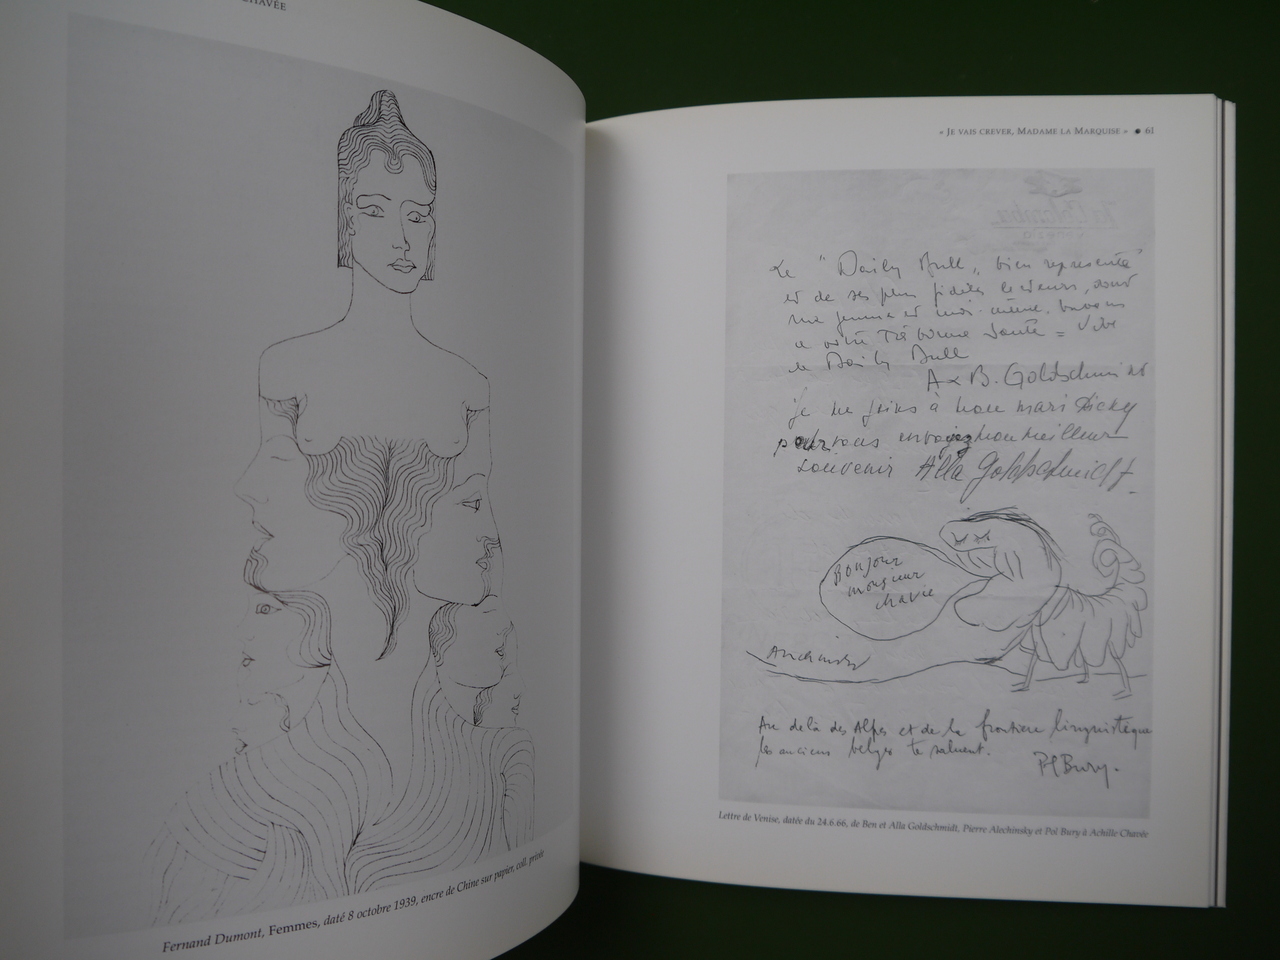 CHAVÉE
Fernand Dumont, Femmes, daté 8 octobre 1939, encre de Chine sur papier, coll. privée
« JE VAIS CREVER, MADAME LA MARQUISE » ● 61
La Colomba
Le "Daily Bull", bien représenté
et de ses plus fidèles lecteurs, dont
ma femme et moi-même, buvons
à votre très bonne santé = Vive
le Daily Bull
A & B. Goldschmidt
je me joins à mon mari Dicky
pour vous envoyer mon meilleur
souvenir Alla Goldschmidt.
Bonjour
monsieur
chavée
Alechinsky
Au delà des Alpes et de la frontière linguistique
les anciens belges te saluent.
Pol Bury.
Lettre de Venise, datée du 24.6.66, de Ben et Alla Goldschmidt, Pierre Alechinsky et Pol Bury à Achille Chavée